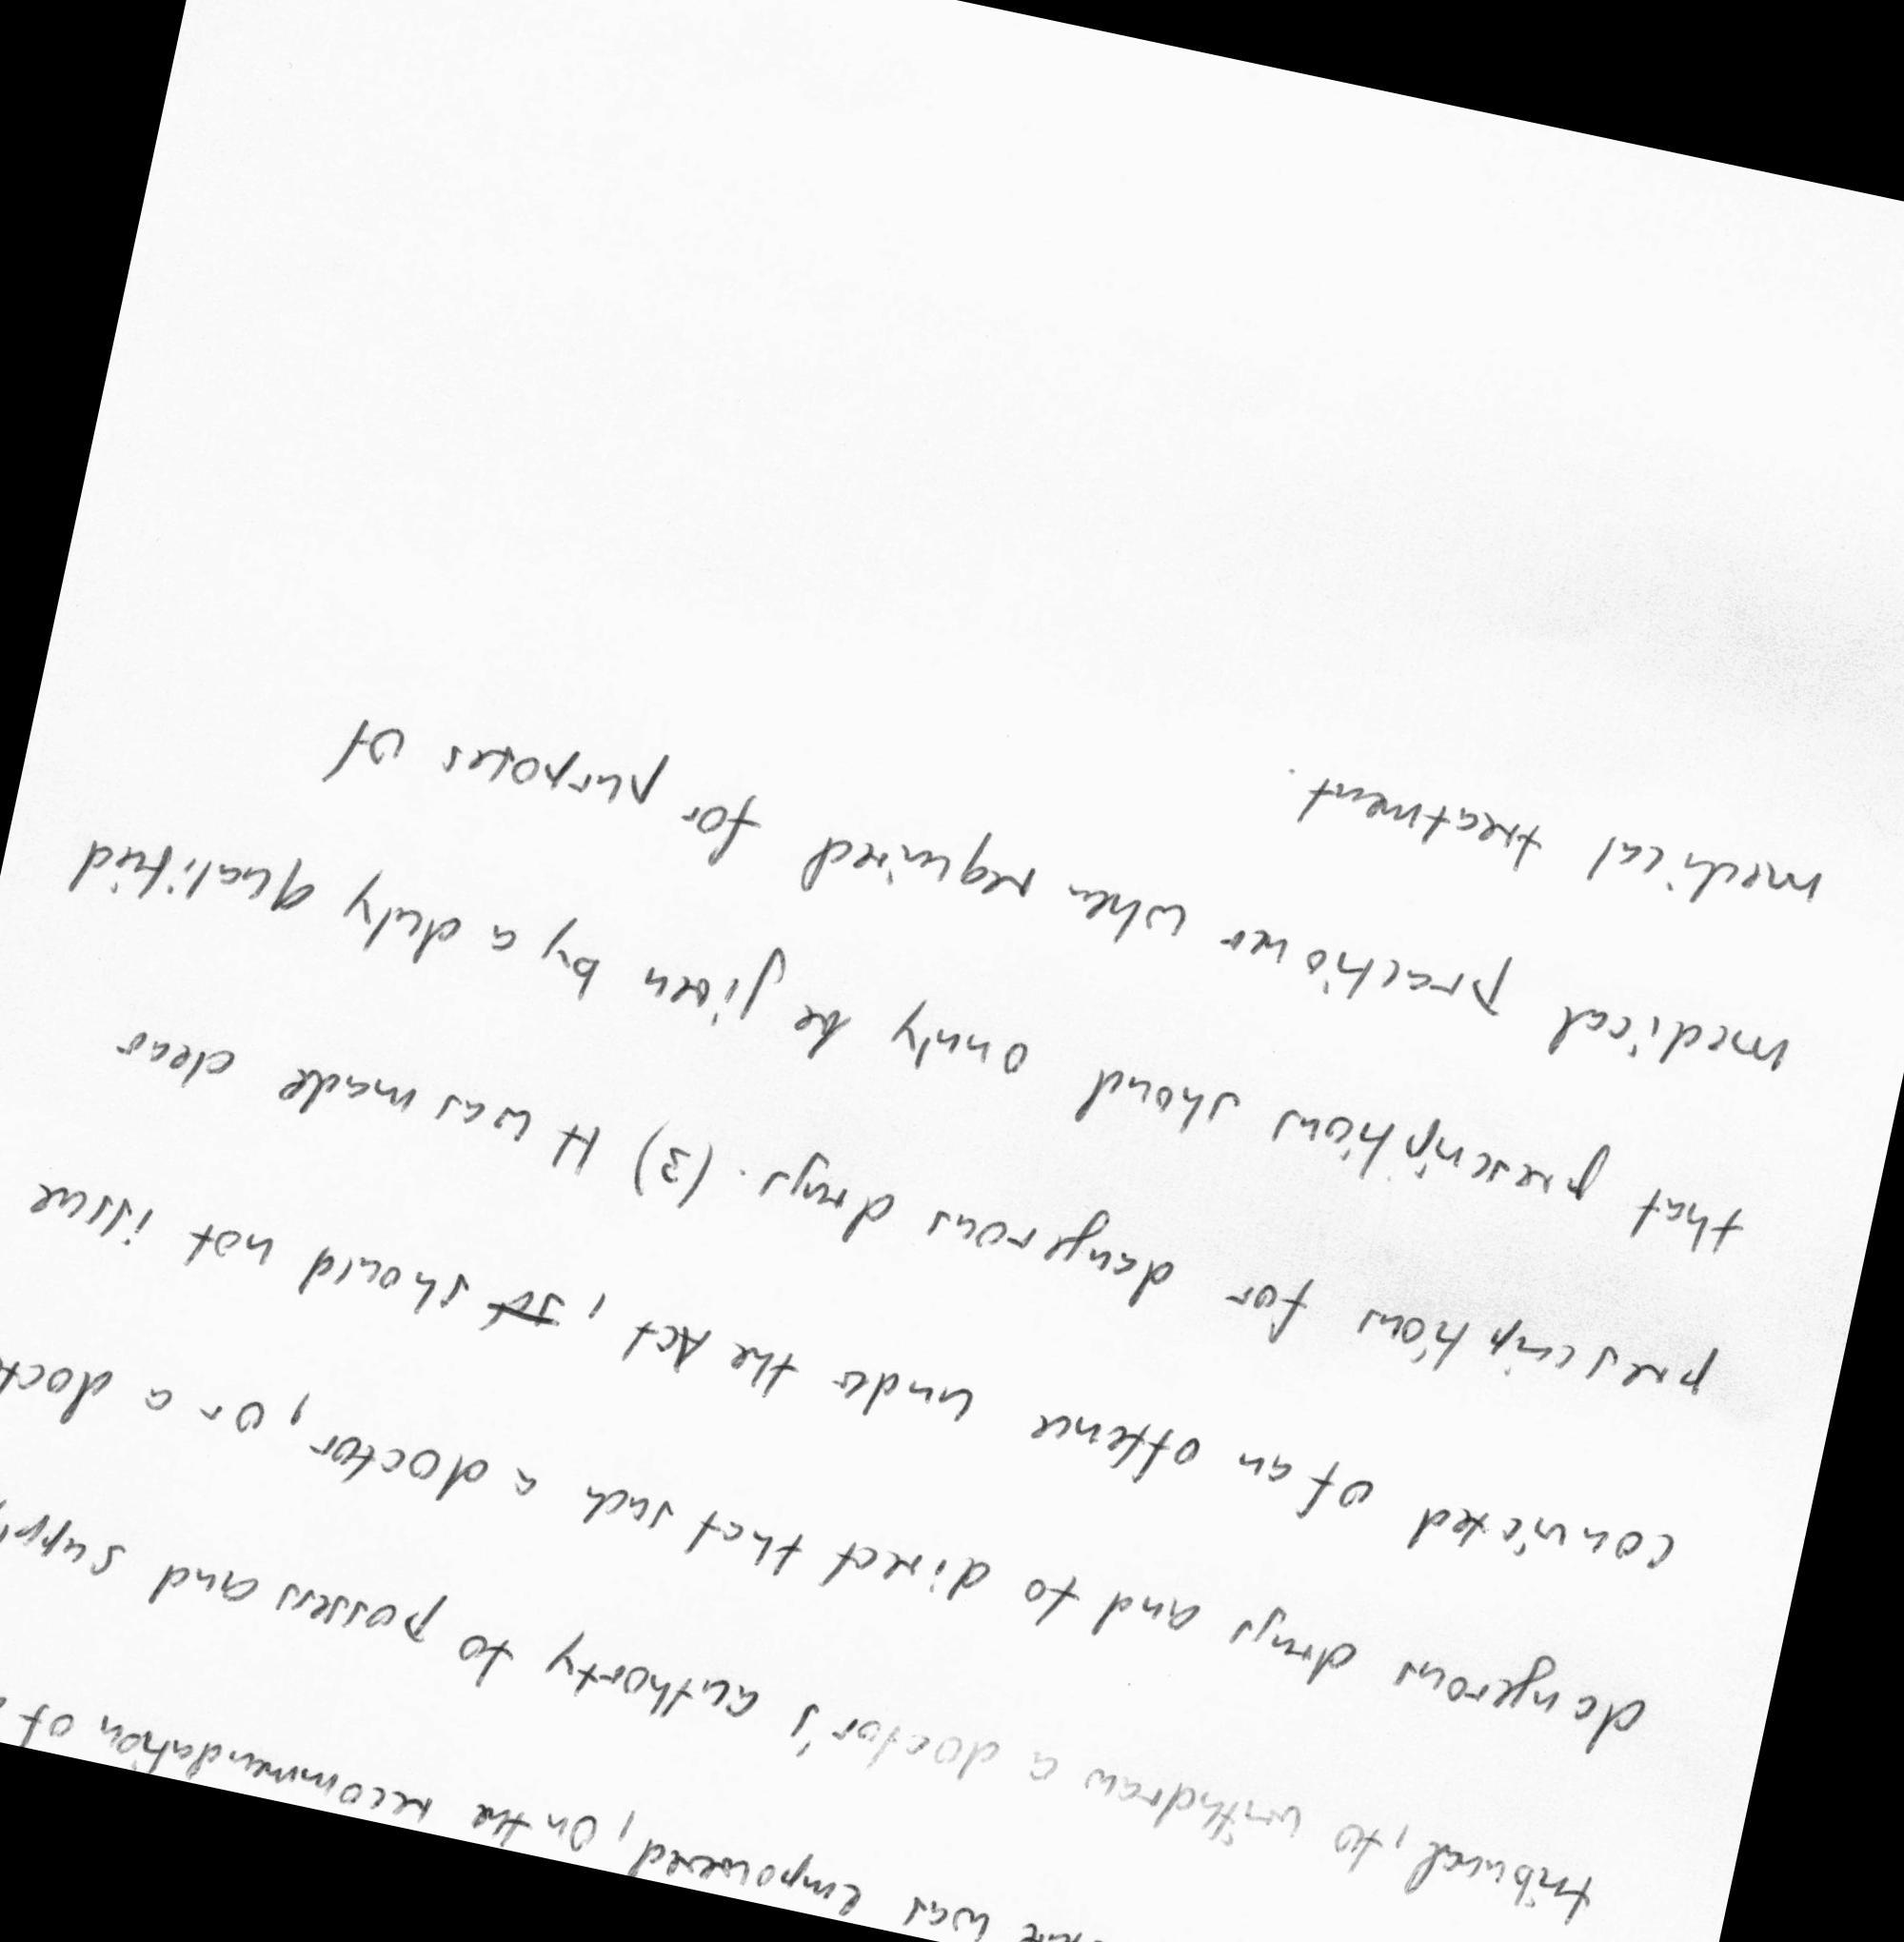 was empowered, on the recommendation of
tribunal, to withdraw a doctor's authorty to possess and
dangerous drugs and to direct that such a doctor, or a
convicted of an offence under the Act, should not issue
prescriptions for dangerous drugs. (3) It was made clear
that prescriptions should only be given by a duly qualified
medical practioner when required for purposes of
medical treatment.